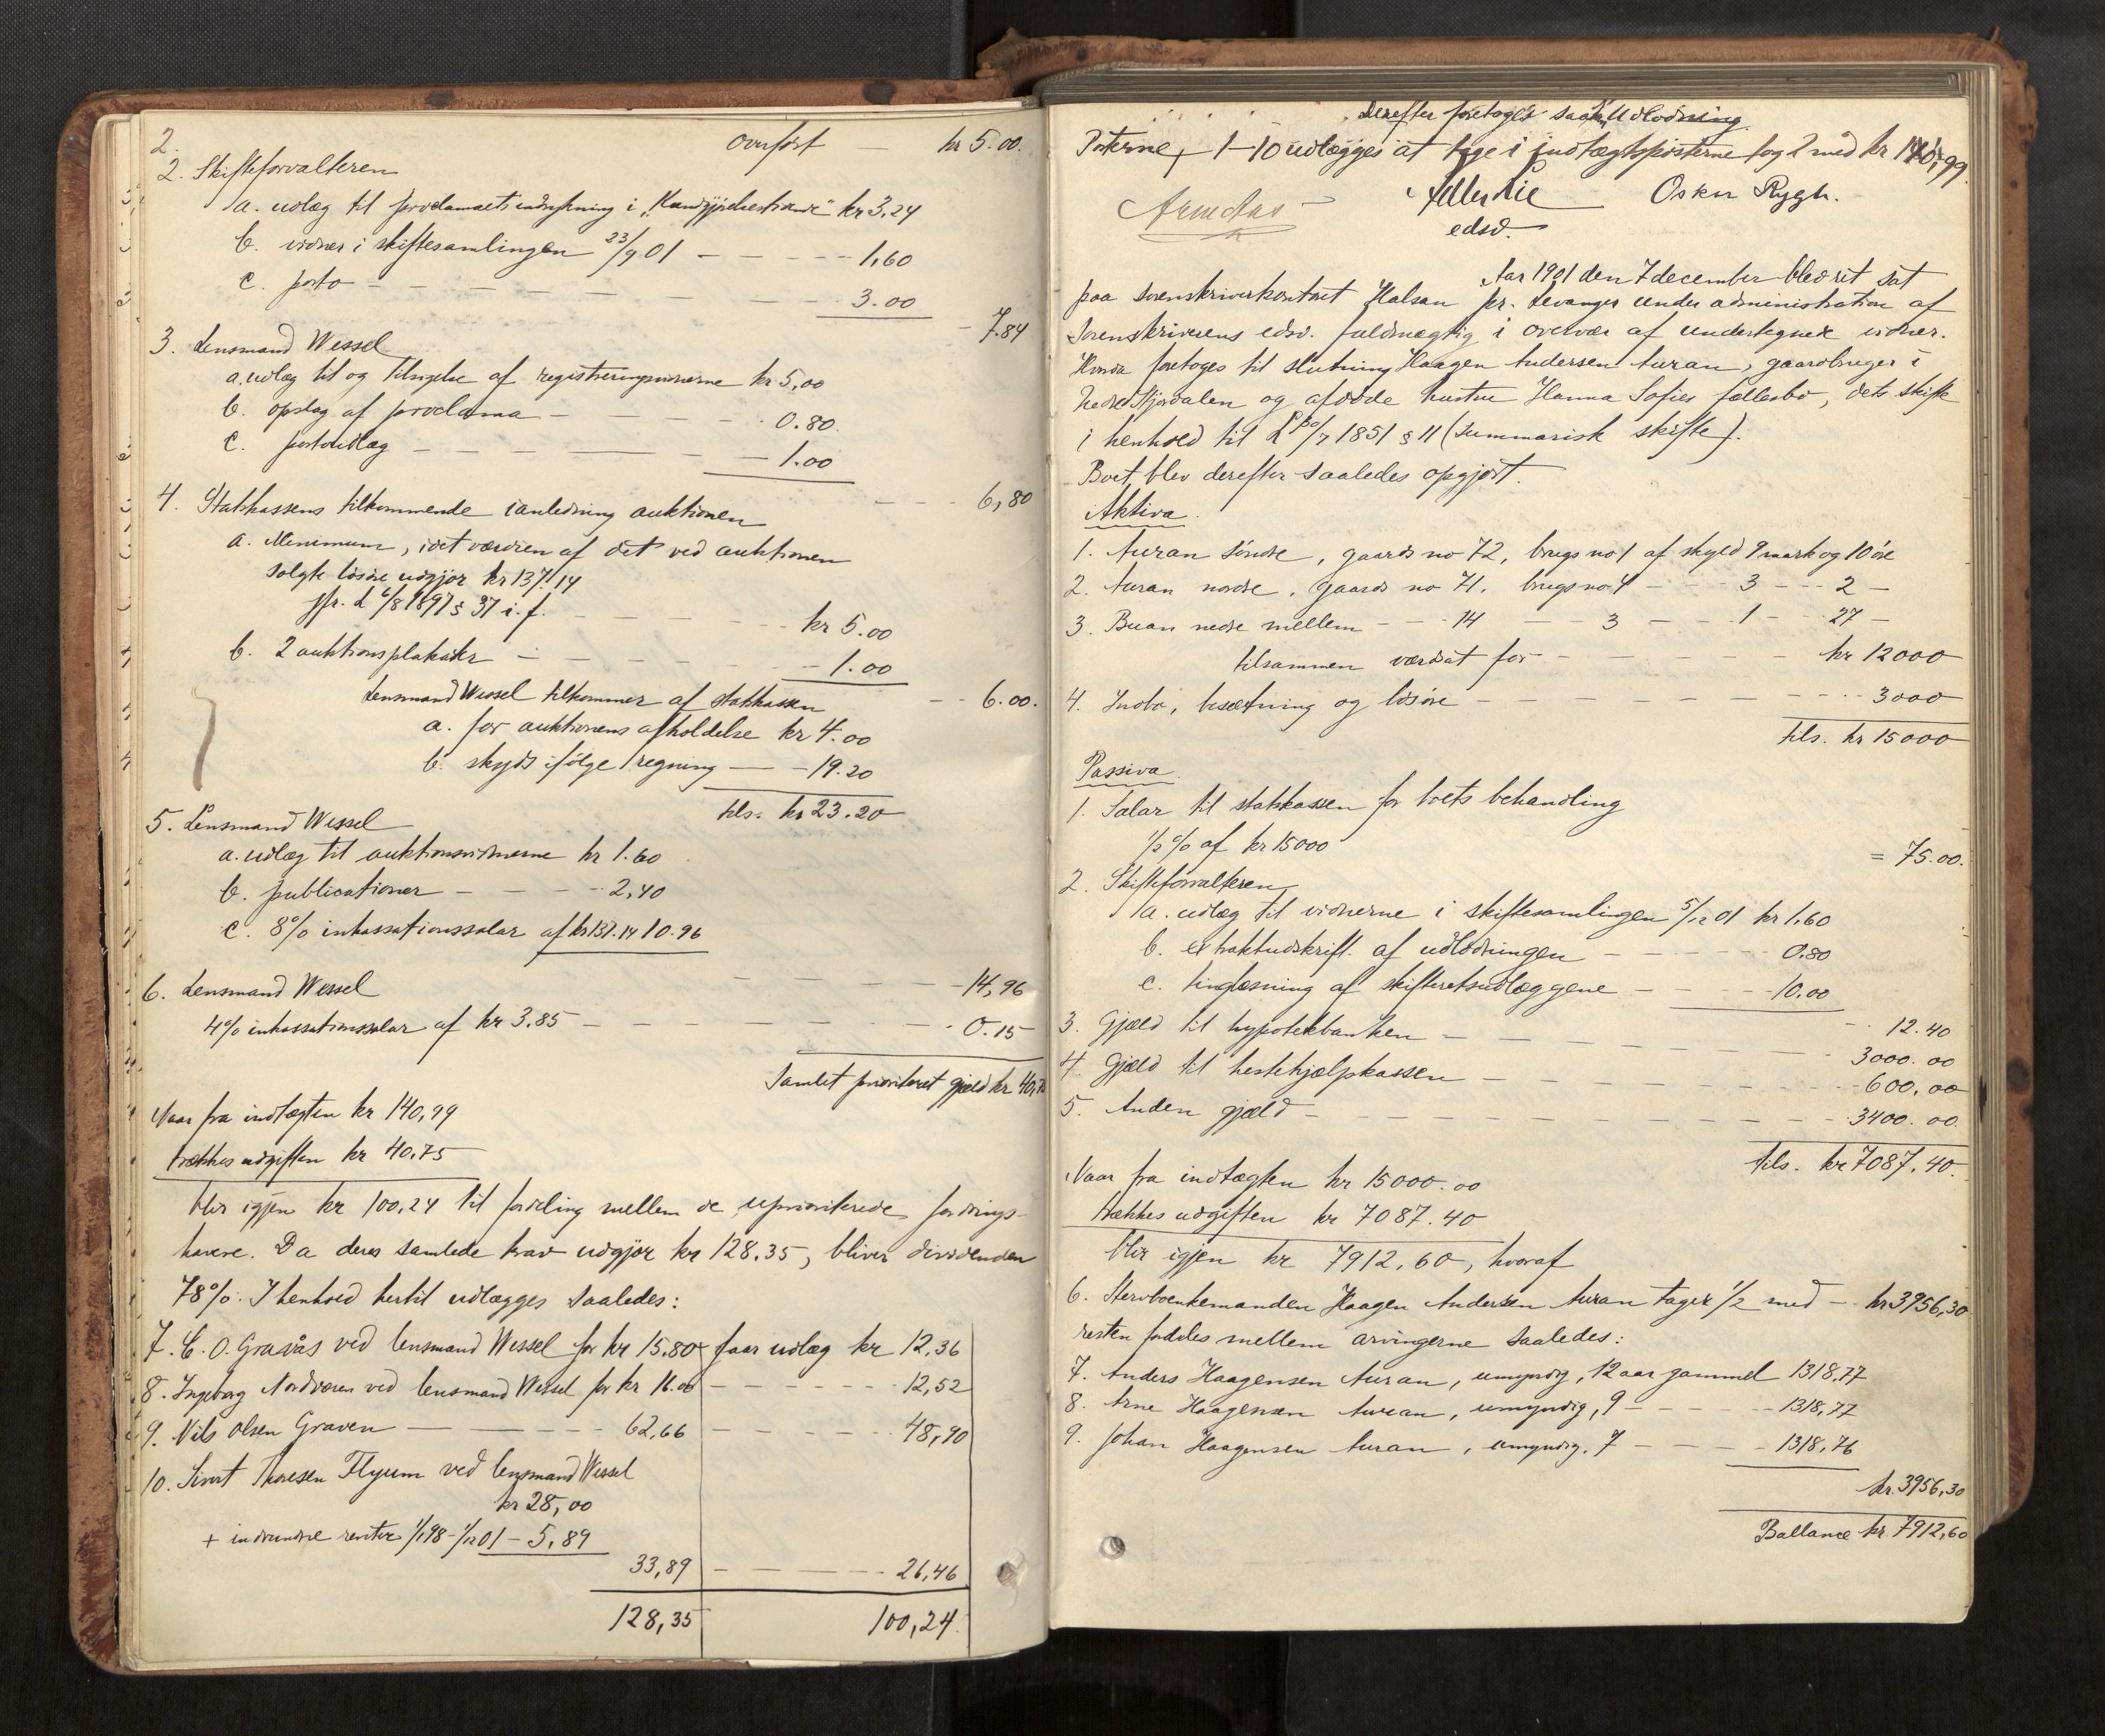 2. overført — kr 5.00.
2. Skifteforvalteren
a. udlæg til proclamaets indrykning i „Kundgjørelsestidende" kr 3.24
b. vidner i skiftesamlingen 23/9 01 - - - - - 1.60
c. porto - - - - - - 3.00
- 7.84
3. Lensmand Wessel
a. udlæg til og tilsigelse af registreringsvidnerne kr 5,00
b. opslag af proclama - - - - 0.80
c. portoudlæg - - - - - 1.00
- - - 6,80
4. Statskassens tilkommende i anledning auktionen
a. Minimum, idet værdien af det ved auktionen
solgte løsøre udgjør kr 137.14
jfr. L 6/8 1897 § 37 i.f. - - - - kr 5.00
b. 2 auktionsplakater - - - - - 1.00
- - 6.00.
Lensmand Wessel tilkommer af statskassen
a. for auktionens afholdelse kr 4.00
b. skyds ifølge regning — - 19.20
tils. kr 23.20
5. Lensmand Wessel
a. udlæg til auktionsvidnerne kr 1.60
b. publicationer - - - - 2,40
c. 8% inkassationssalar af kr 137.14 10.96
- - - - 14,96
6. Lensmand Wessel
4% inkassationssalar af kr 3.85 - - - - - - 0.15
Samlet prioriteret gjæld kr 40,75
Naar fra indtægten kr 140,99
trækkes udgiften kr 40.75
blir igjen kr 100,24 til fordeling mellem de uprioriterede fordrings-
havere. Da deres samlede krav udgjør kr 128.35, bliver dividenden
78%. I henhold hertil udlægges saaledes:
7. C. O. Gravås ved lensmand Wessel for kr 15.80 faar udlæg kr 12,36
8. Ingeborg Nordveren ved lensmand Wessel for kr 16.00 - - - - - 12,52
9. Nils Olsen Graven — - - - - 62,66 - - - - - 48,90
10. Sivert Thoresen Flyum ved lensmand Wessel
kr 28,00
+ indvundne renter 1/1 98 - 1/12 01 - 5,89
33,89 - - - - - 26,46
128,35 100,24.
Derefter foretoges saadn Udlodning
Posterne 1-10 udlægges at tage i indtægtsposterne 1 og 2 med kr 140,99.
Oskar Rygh.
edsv.
Aar 1901 den 7 december blev ret sat
paa sorenskriverkontoret Halsan pr. Levanger under administration af
sorenskriverens edsv. fuldmægtig i overvær af undertegnede vidner.
Hvorda foretoges til slutning Haagen Andersen Auran, gaardbruger i
nedre Stjørdalen og afdøde hustru Hanna Sofies fællesbo, dets skifte
i henhold til L 30/7 1851 § 11 (Summarisk skifte).
Boet blev derefter saaledes opgjort.
Aktiva.
1. Auran søndre, gaards no 72, brugs no 1 af skyld 9 mark og 10 øre
2. Auran nordre, gaards no 71. brugs no 4 - - - 3 - - - 2 -
3. Buan nedre mellem - - - 14 — 3 — - 1 - - 27 -
tilsammen værdsat for - - - - - kr 12000
4. Indbo, besætning og løsøre - - - - - - - 3000
tils. kr 15000
Passiva.
1. Salar til statskassen for boets behandling
1/2 % af kr 15000 = 75.00.
2. Skifteforvalteren
a. udlæg til vidnerne i skiftesamlingen 5/12 01 kr 1.60
b. extraktudskrift af udlodningen - - - - - 0.80
c. tinglæsning af skifteretsudlæggene - - - - 10.00
- - 12.40
3. Gjæld til hypotekbanken - - - - - - - 3000.00
4. Gjæld til hestehjælpskassen - - - - - - - 600.00
5. Anden gjæld - - - - - - - - - 3400.00.
tils. kr 7087.40.
Naar fra indtægten kr 15000.00
trækkes udgiften kr 7087.40
blir igjen kr 7912.60, hvoraf
6. Stervboenkemanden Haagen Andersen Auran tager 1/2 med — kr 3956,30
resten fordeles mellem arvingerne saaledes:
7. Anders Haagensen Auran, umyndig, 12 aar gammel 1318,77
8. Arne Haagensen Auran, umyndig, 9 - - - - - 1318,77
9. Johan Haagensen Auran, umyndig. 7 - - - - 1318,76
kr. 3956,30
Ballance kr. 7912,60